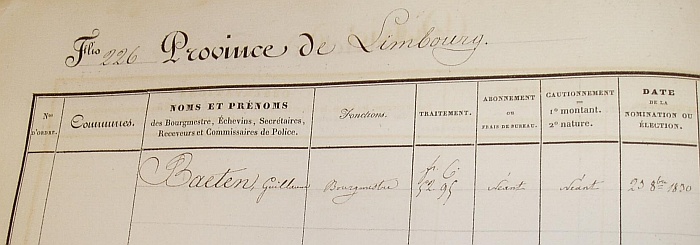 Folio 226 Province de Limbourg.
Nos D'ORDRE.
Communes.
NOMS ET PRÉNOMS
des Bourgmestre, Échevins, Secrétaires,
Receveurs et Commissaires de Police.
Fonctions.
TRAITEMENT.
ABONNEMENT
OU
FRAIS DE BUREAU.
CAUTIONNEMENT
1º montant.
2º nature.
DATE
DE LA
NOMINATION OU
ÉLECTION.
fr. C.
Baeten, Guillaume Bourgmestre 52 95 Néant Néant 23 8bre 1830